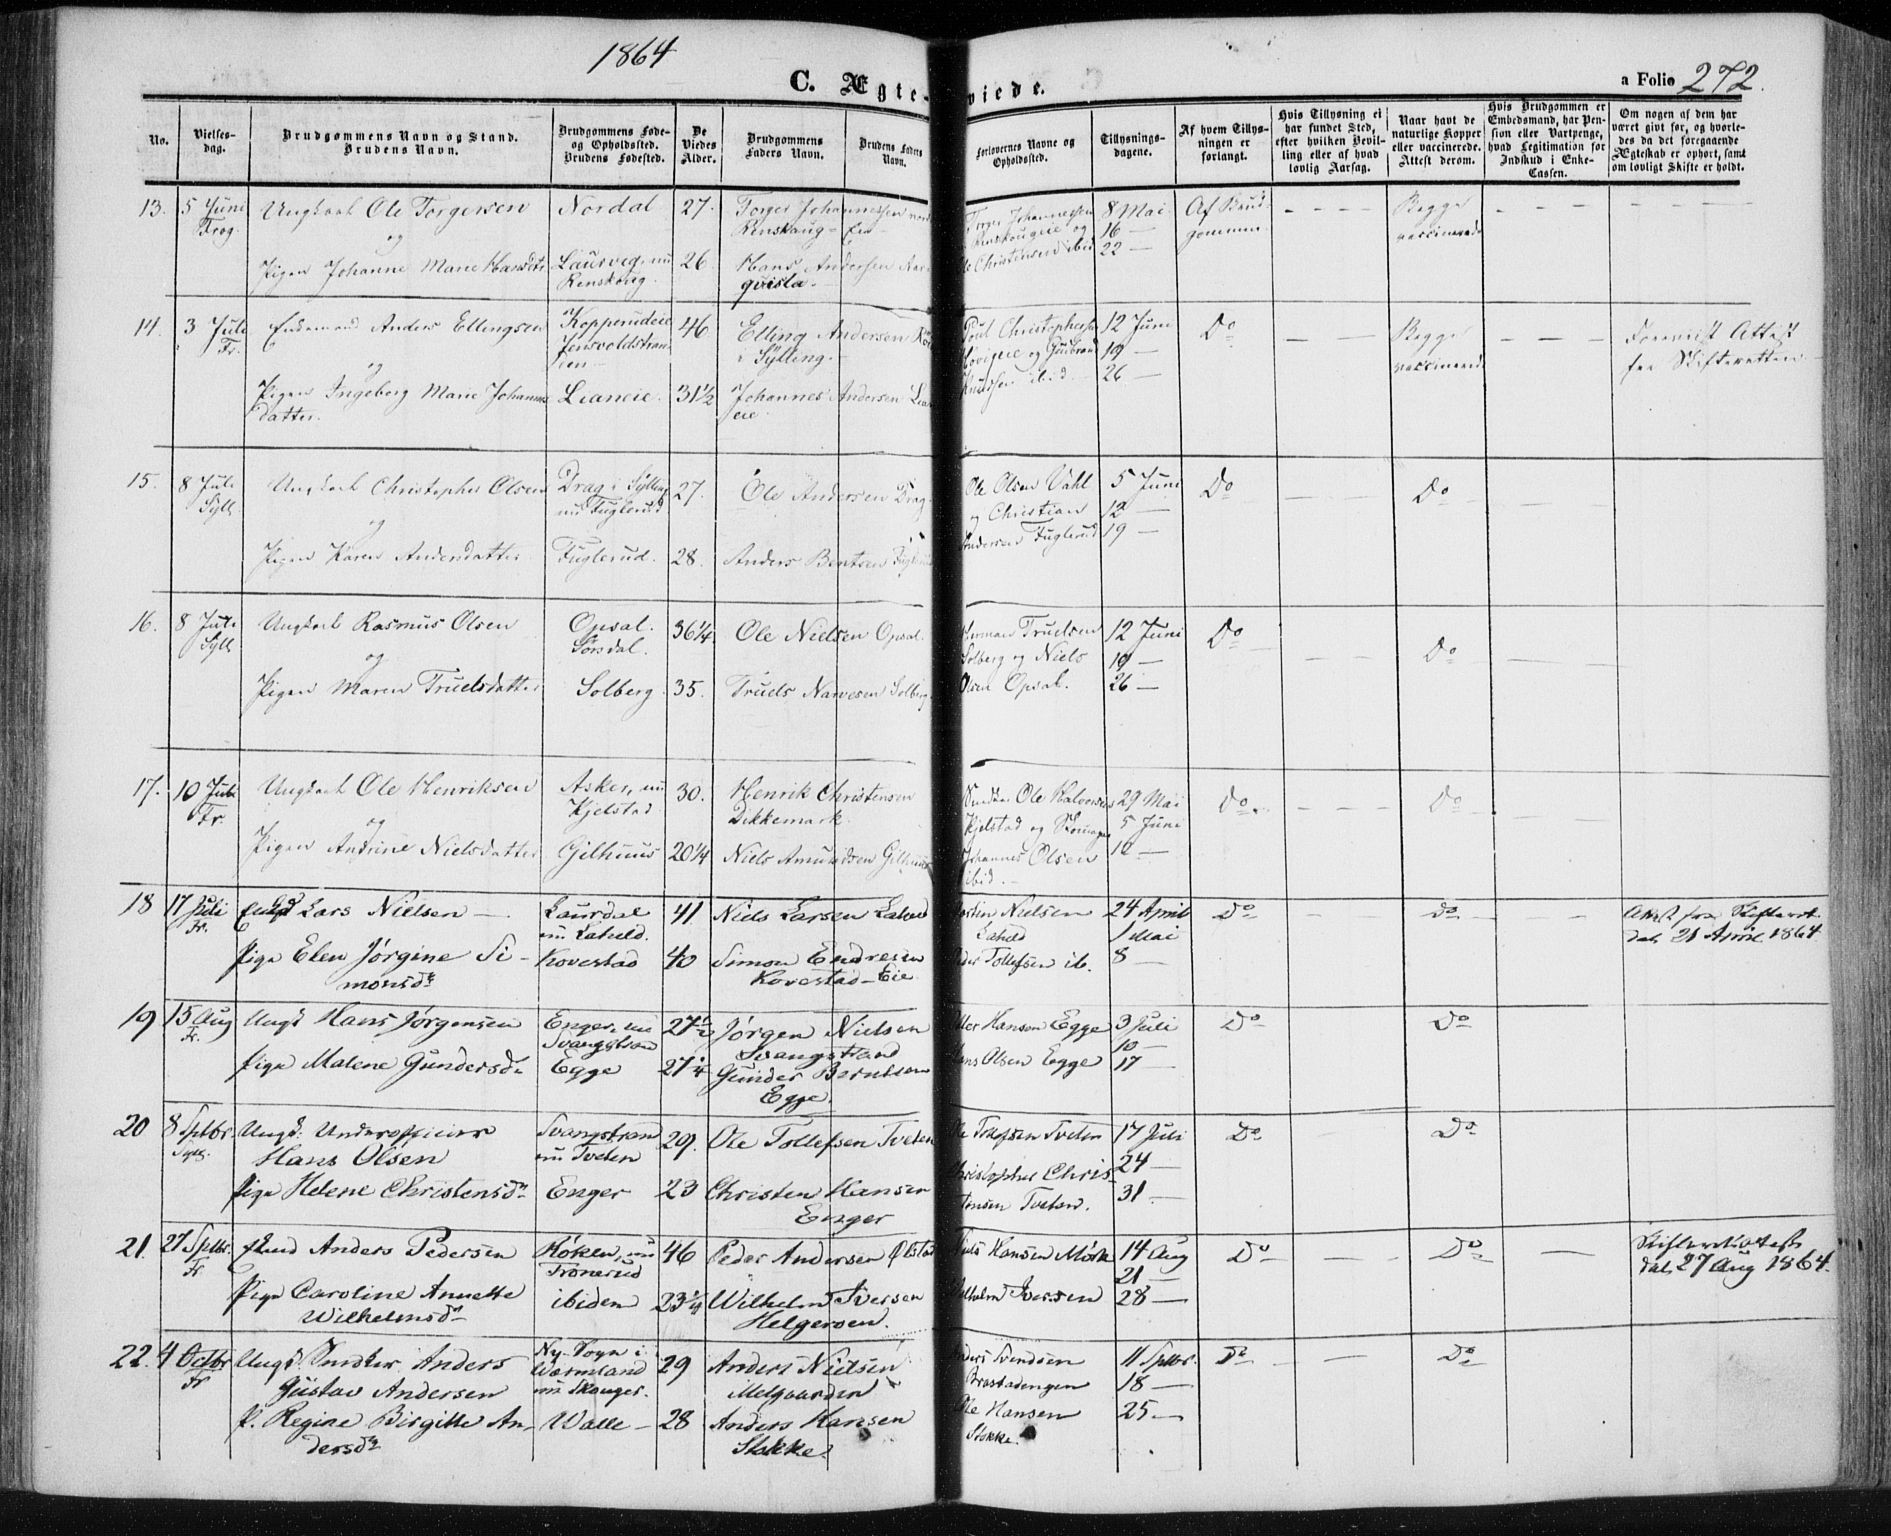 1864
C. Ægte- viede.
a Folio 272.
No.
Vielses-
dag.
Brudgommens Navn og Stand.
Brudens Navn.
Brudgommens Føde-
og Opholdssted.
Brudens Fødested.
De
Viedes
Alder.
Brudgommens
Faders Navn.
Brudens Faders
Navn.
Forlovernes Navne og
Opholdssted.
Tillysnings-
dagene.
Af hvem Tillys-
ningen er
forlangt.
Hvis Tillysning ei
har fundet Sted,
efter hvilken Bevil-
ling eller af hvad
lovlig Aarsag.
Naar havt de
naturlige Kopper
eller vaccinerede.
Attest derom.
Hvis Brudgommen er
Embedsmand, har Pen-
sion eller Vartpenge,
hvad Legitimation for
Indskud i Enke-
Cassen.
Om nogen af dem har
været givt før, og hvorle-
des da det foregaaende
Ægteskab er ophørt, samt
om lovligt Skifte er holdt.
13. 5 Juni Ungkarl Ole Torgersen Nordal 27. Torger Johannessen Torger Johannessen 8 Mai Af Brud- Begge
og Renskougeie og 16 gommen vaccinerede
Pigen Johanne Marie Hansdtr Laurvig, nu 26 Hans Andersen Ole Christensen ibid 22
Renskoug. qvisla.
14. 3 Juli Enkemand Anders Ellingsen Kopperudeie 46 Elling Andersen Poul Christophersen 12 Juni Do Begge Foreviist Attest
Fr. i Sylling. Hovseie og Gudbrand 19 vaccinerede fra Skifteretten
og Knudsen ibid 26
Pigen Ingeborg Marie Johannes Lianeie. 31½ Johannes Andersen Lian
datter. eie.
15. 8 Juli Ungkarl Christopher Olsen Drag i Sylling 27. Ole Andersen Drag Ole Olsen Vahl 5 Juni Do Do
Syll. nu Fuglerud. og Christian 12
og Andersen Fuglerud 19
Pigen Karen Andersdatter Fuglerud. 28. Anders Bentsen Fuglerud
16. 8 Juli Ungkarl Rasmus Olsen Opsal. 36¼ Ole Nielsen Opsal. Herman Truelsen 12 Juni Do Do
Syll. Sørsdal. Solberg og Niels 19
og Olsen Opsal. 26
Pigen Maren Truelsdatter Solberg. 35. Truels Narvesen Solberg
17. 10 Juli Ungkarl Ole Henriksen Asker, nu 30. Henrik Christensen Ole Halvorsen 29 Mai Do Do
Fr. Kjelstad Dikkemark. Kjelstad og 5 Juni
og Johannes Olsen 12
Pigen Andrine Nielsdatter Gilhuus 20¼ Niels Amundsen Gilhuus ibid.
18 17 Juli Enkd Lars Nielsen Laurdal 41. Niels Larsen Laheld Nielsen 24 April Do Do Attest fra Skifteret.
Fr. nu Laheld. Laheld 1 Mai dat. 21 April 1864.
Pige Elen Jørgine Si- Kovestad 40 Simon Endresen Tollefsen ib. 8
monsdr Kovestad-Eie
19 15 Aug Ungk Hans Jørgensen Enger, nu 27½ Jørgen Nielsen Hansen Egge 3 Juli Do Do
Fr. Svangstrand Svangstrand 10
Pige Malene Gundersdr Egge 27¼ Gunder Berntsen Hans Olsen Egge 17
Egge.
20 8 Sptbr. Ungk. Underofficier Svangstran 29. Ole Tollefsen Tveten Ole Tollefsen Tveten 17 Juli Do Do
Syll. Hans Olsen nu Tveten Christopher Chris- 24
Pige Helene Christensdr Enger 23 Christen Hansen tensen Tveten. 31
Enger
21. 27 Sptbr. Ekmd Anders Pedersen Røken, nu 46 Peder Andersen Ølstad Niels Hansen Mørk 14 Aug Do Do Skifteretsattest
Fr. Tronerud 21 dat. 27 Aug 1864.
Pige Caroline Annette ibidem 23¼ Wilhelm Iversen Wilhelm Iversen 28
Wilhelmsdr Helgeroen.
22. 4 Octbr Ungk. Snedker Anders Ny-Sogn i 29 Anders Nielsen Anders Svendsen 11 Sptbr. Do Do
Fr Gustav Andersen Wærmland Melgaarden Brastadengen 18
nu Skouger.
P. Regine Birgitte An- Walle 28 Anders Hansen Ole Hansen 25
dersdr Stokke. Stokke.